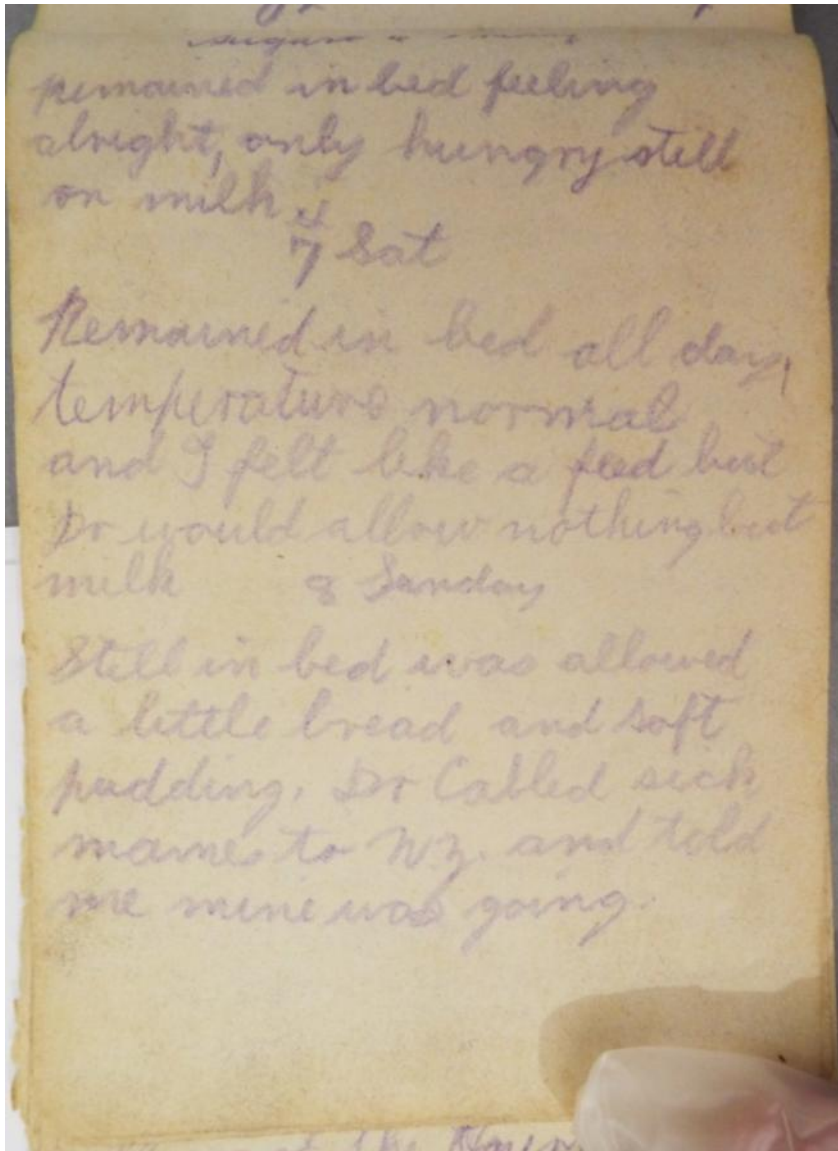 remained in bed feeling
alright, only hungry still
on milk
7 Sat
Remained in bed all day,
temperature normal
and I felt like a feed but
Dr would allow nothing but
milk 8 Sunday
Still in bed was allowed
a little bread and soft
pudding. Dr Cabled sick
names to N.Z. and told
me mine was going.
at the